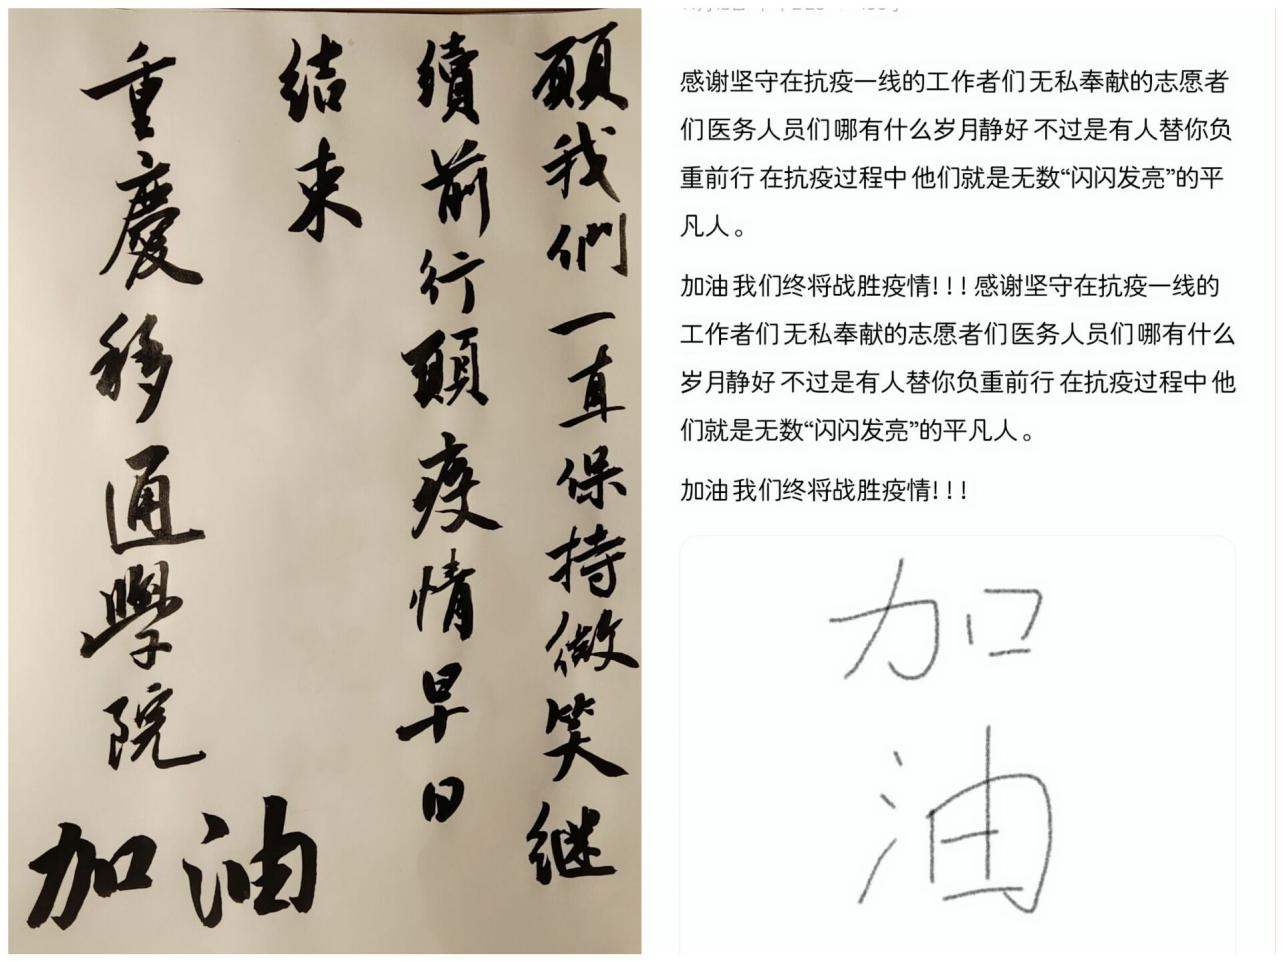 願我們一直保持微笑继
續前行願疫情早日
结束
重慶移通學院
加油
感谢坚守在抗疫一线的工作者们 无私奉献的志愿者
们 医务人员们 哪有什么岁月静好 不过是有人替你负
重前行 在抗疫过程中 他们就是无数“闪闪发亮”的平
凡人。
加油 我们终将战胜疫情！！！感谢坚守在抗疫一线的
工作者们 无私奉献的志愿者们 医务人员们 哪有什么
岁月静好 不过是有人替你负重前行 在抗疫过程中 他
们就是无数“闪闪发亮”的平凡人。
加油 我们终将战胜疫情！！！
加
油